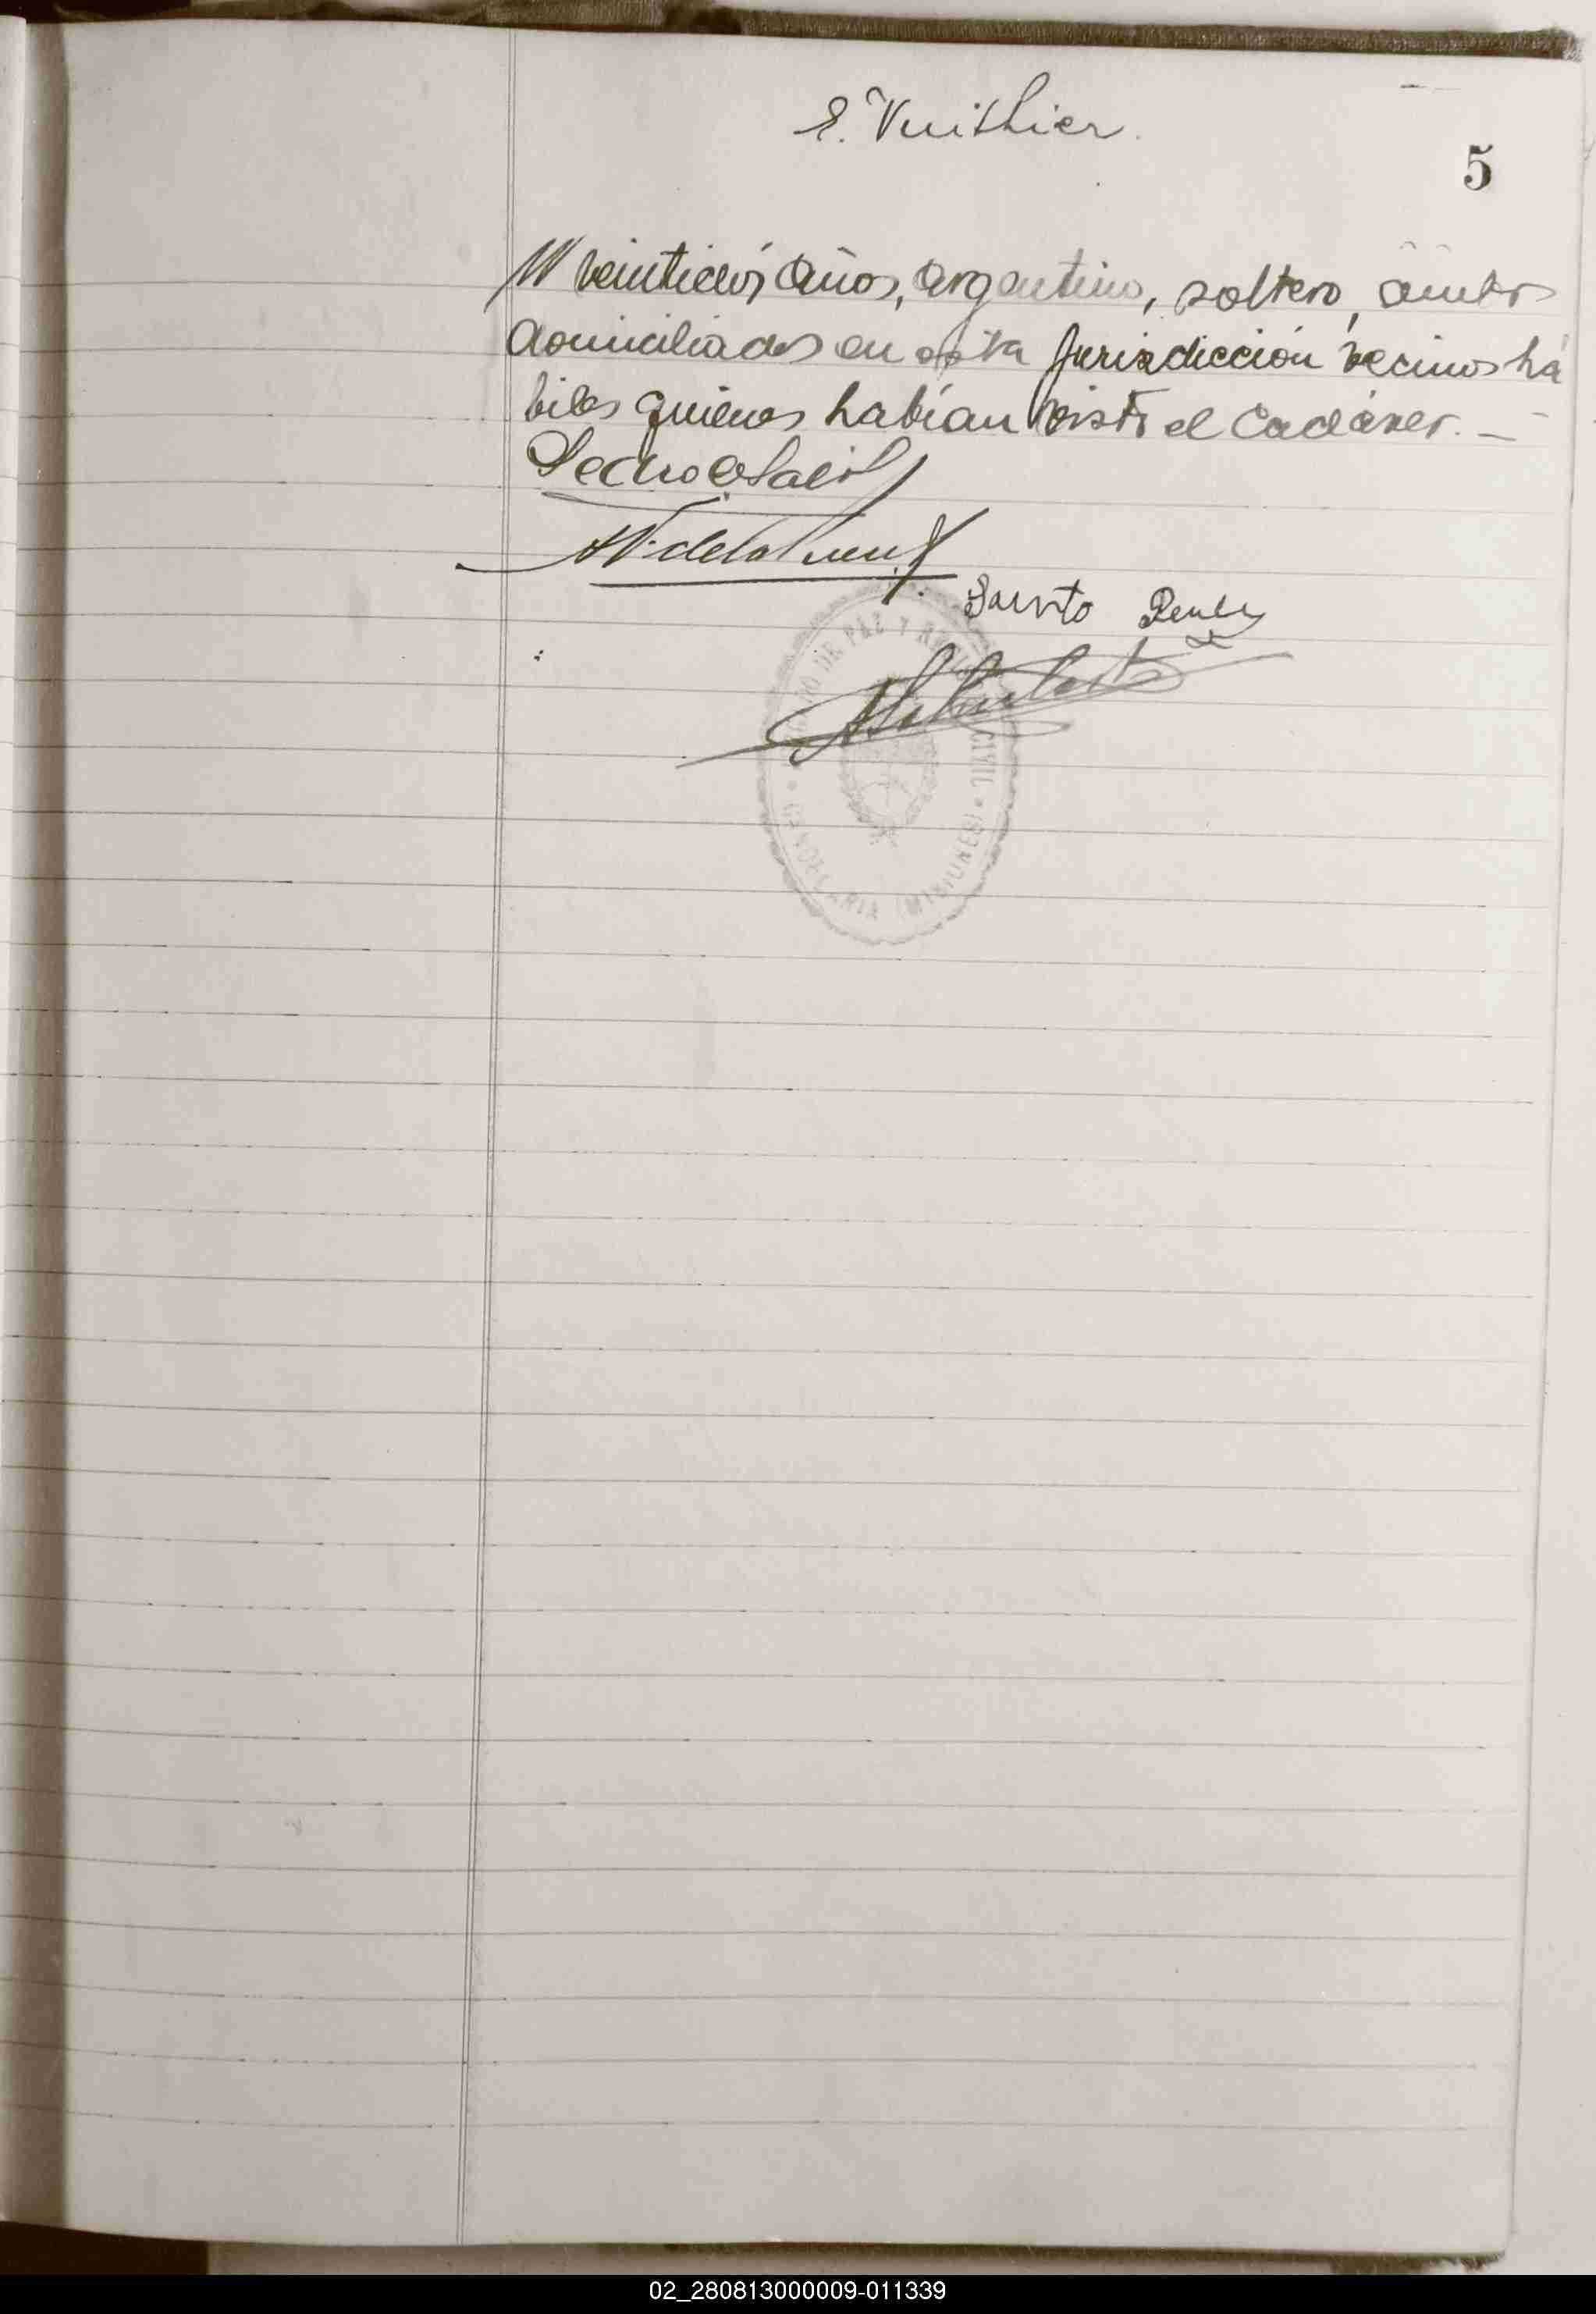 E. Vuithier.
5
veintidós años, argentino, soltero, ambos
domiciliados en esta Jurisdicción vecinos há
biles quienes habían visto el cadáver. —
Pedro
Santo
JUZGADO DE PAZ Y REGISTRO CIVIL
CANDELARIA (MISIONES)
02_280813000009-011339